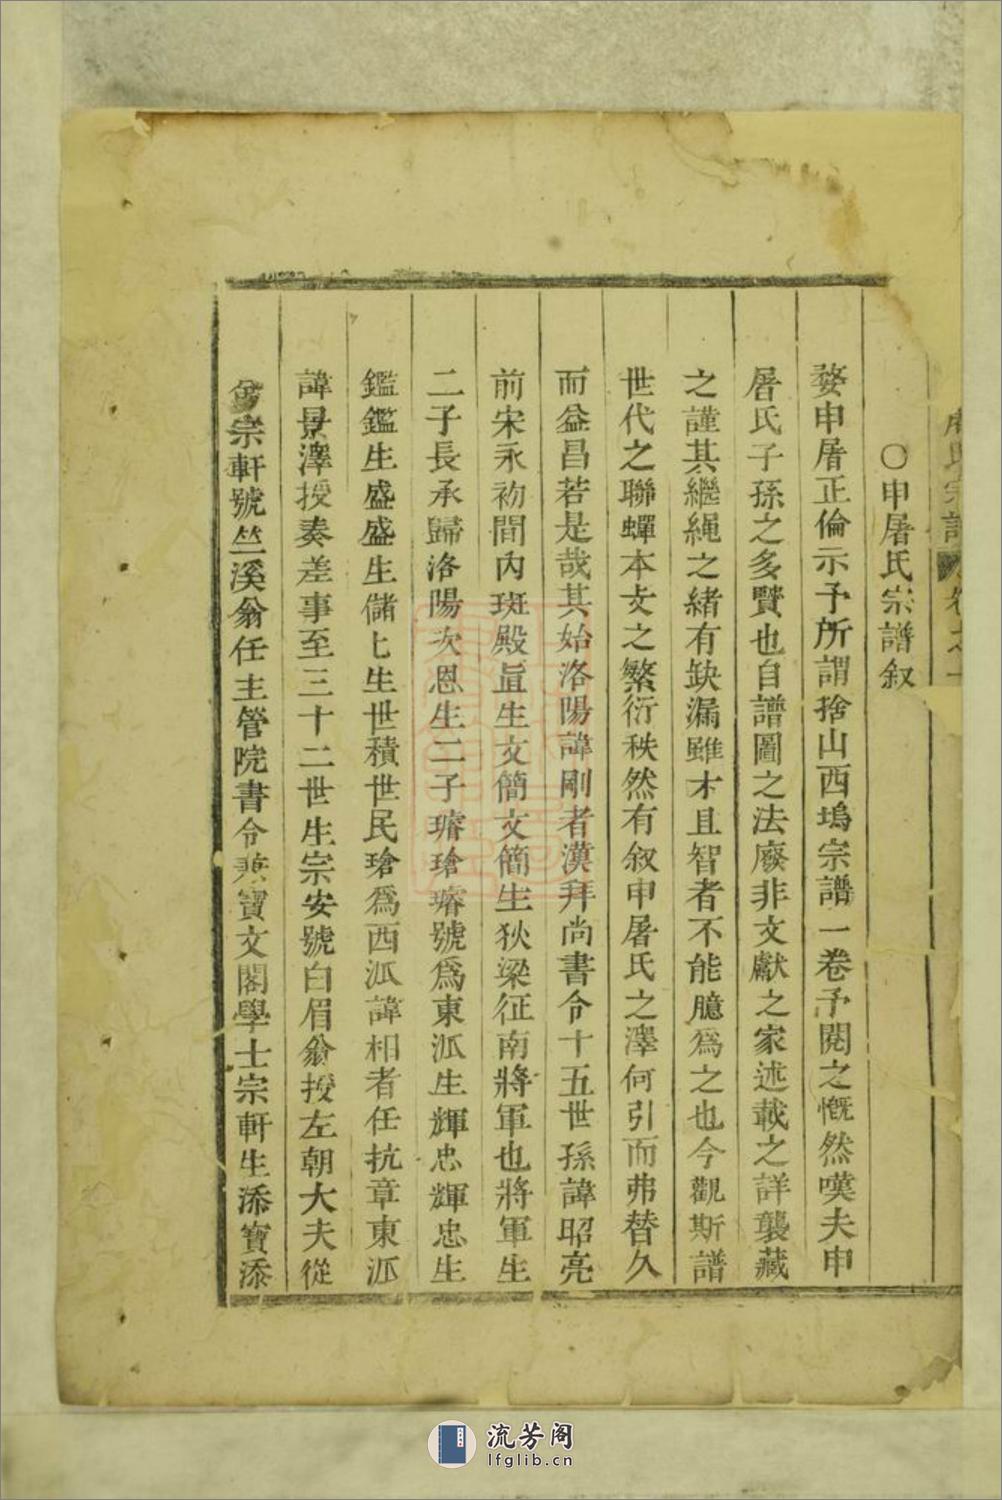 氏宗譜
〇申屠氏宗譜叙
婺申屠正倫示予所謂捨山西塢宗譜一卷予閱之慨然嘆夫申
屠氏子孫之多賢也自譜圖之法廢非文獻之家述載之詳襲藏
之謹其繼繩之緒有缺漏雖才且智者不能臆爲之也今觀斯譜
世代之聯蟬本支之繁衍秩然有叙申屠氏之澤何引而弗替久
而益昌若是哉其始洛陽諱剛者漢拜尚書令十五世孫諱昭亮
前宋永初間內班殿直生文簡文簡生狄梁征南將軍也將軍生
二子長承歸洛陽次恩生二子璿瑲璿號爲東派生輝忠輝忠生
鑑鑑生盛盛生儲七生世積世民瑲爲西派諱相者任抗章東派
諱景澤授奏差事至三十二世生宗安號白眉翁授左朝大夫從
宗軒號竺溪翁任主管院書令兼寶文閣學士宗軒生添寶添
流芳阁
lfglib.cn